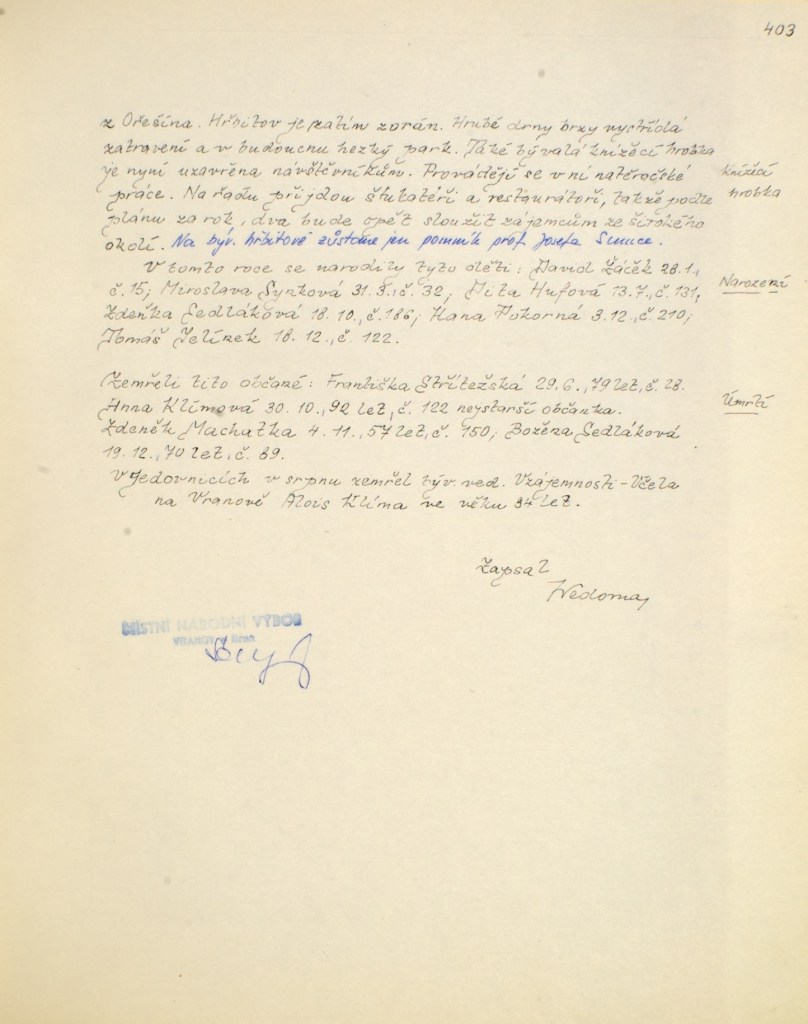 403
z Ořešína. Hřbitov je zatím zorán. Hrubé drny brzy vystřídá
zatravení a v budoucnu hezký park. Také bývalá knížecí hrobka
je nyní uzavřena návštěvníkům. Provádějí se v ní natěračské
práce. Na řadu přijdou štukatéři a restaurátoři, takže podle
plánu za rok, dva bude opět sloužit zájemcům ze širokého
okolí. Na býv. hřbitově zůstane jen pomník prof. Josefa
Knížecí
hrobka
V tomto roce se narodily tyto děti: David Žáček 28.1.,
č. 15; Miroslava Synková č. 32; Hufová 13.7., č. 131,
Zdeňka Sedláková 18.10., č. 186; Hana Pokorná 3.12., č. 210;
Tomáš Jelínek 18.12., č. 122.
Narození
Zemřeli tito občané: Františka Střítežská 29.6., 79 let, č. 28.
Anna Klímová 30.10., 92 let, č. 122 nejstarší občanka.
Zdeněk Machatka 4.11., 57 let, č. 150; Božena Sedláková
19.12., 70 let, č. 89.
Úmrtí
V Jedovnicích v srpnu zemřel býv. ved. Vzájemnosti-Včela
na Vranově Alois Klíma ve věku let.
Zapsal
Nedoma
MÍSTNÍ NÁRODNÍ VÝBOR
VRANOV u Brna